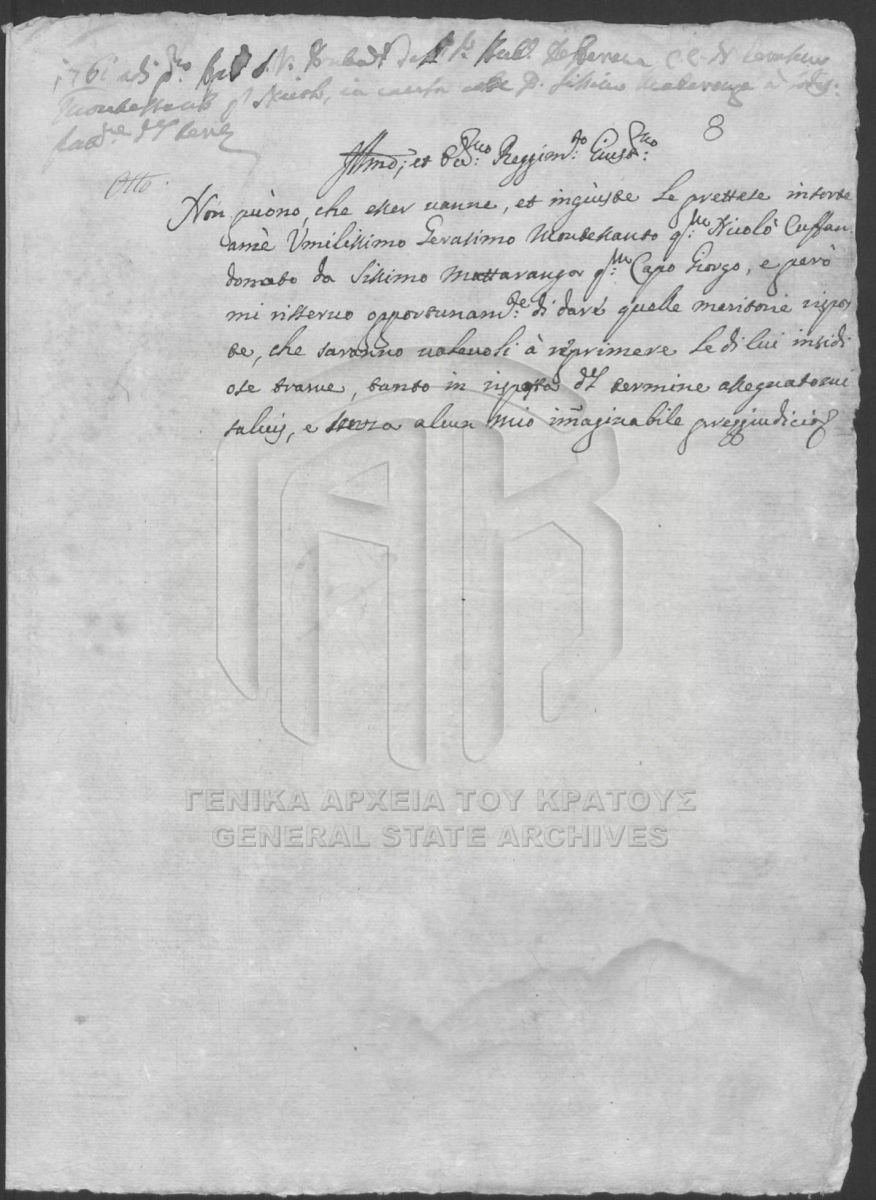 1761 adi p.mo
Montessanto q.m Nicolò, in causa
8
Ill.mo, et Ecc.mo Reggim.to Giust.mo
Atto
Non puono, che esser vanne, et ingiuste le prettese insorte
amè Umilissimo Gerasimo Montessanto q.m Nicolò
donato da Sissimo Mattaranga q.m Capo Giorgo, e però
mi risservo opportunam.te di dare quelle meritorie rispos
te, che saranno valevoli à reprimere le di lui insidi
ose trame, tanto in risposta del termine assegnatomi
salvis, e senza alcun mio imaginabile preggiudicio
ΓΕΝΙΚΑ ΑΡΧΕΙΑ ΤΟΥ ΚΡΑΤΟΥΣ
GENERAL STATE ARCHIVES